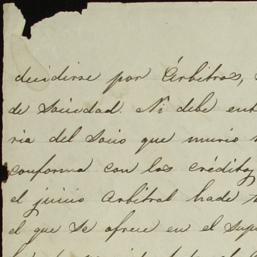 decidirse por Árbitros,
de Sociedad. Ni debe ent
ria del Socio que murio
conforma con los créditos
el juicio Arbitral hade
el que se ofrece en el supe